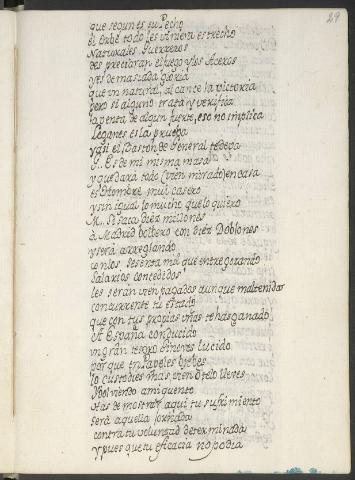 29
que segun es tu Pecho
el orbe todo les viniera estrecho
Naturales Guerreros
des preciaran el fuego y los Aceros
y es demasiada gloria
que un natural, alcanze la victoria
pero si alguno trata y verifica
la venta de algun fuerte, eso no implica
Leganes es la prueba
y asi el Baston de General te deva
J.. Es de mi misma masa
y quedará todo (vien mirado) en casa
es Hombre mui casero
y sin igual lo mucho que lo quiero
M.. Si saca diez millones
de Madrid boltero con diez Doblones
y será arreglando
con los sesenta mil que entre gozando
Salarios concedidos
les serán vien pagados aunque mal tenidos
concurrente tu estado
que con tus propias uñas te has ganado.
A España conducido
un gran tesoro Sinores lucido
por que en Papeles
lo custodies mas, vien de llo lleves
Nbolviendo a mi quento
Has de mostrar aqui tu sufrimiento
será aquella jornada
contra tu voluntad determinada
y pues que tu eficacia no podia